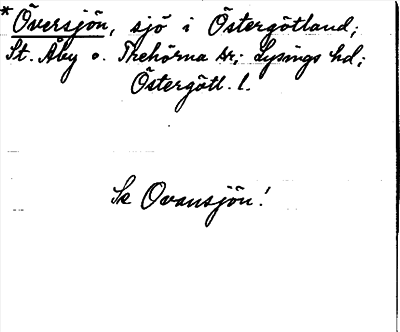 * Översjön, sjö i Östergötland;
St. Åby o. Trehörna sr; Lysings hd;
Östergötl. l.
Se Ovansjön!